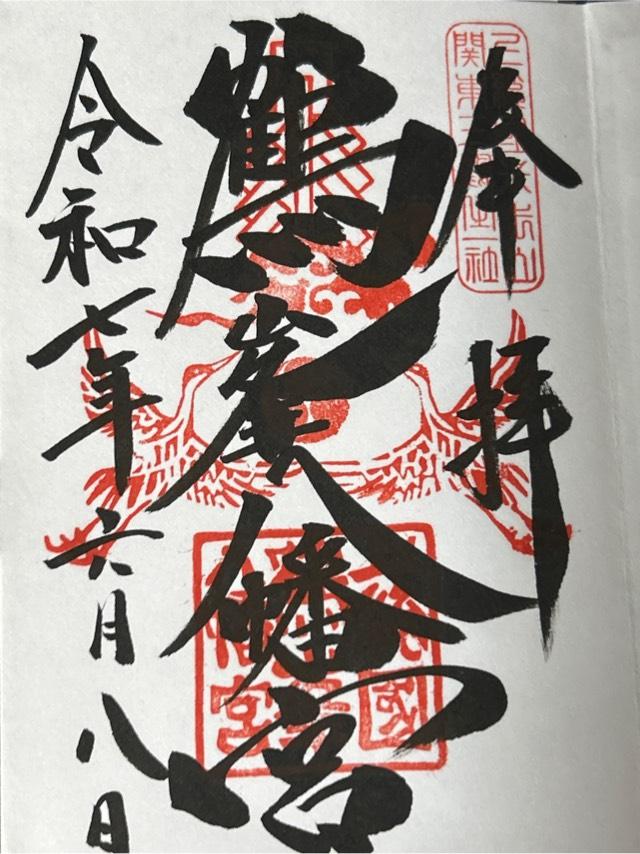 奉拝
鶴峯八幡宮
令和七年六月八日